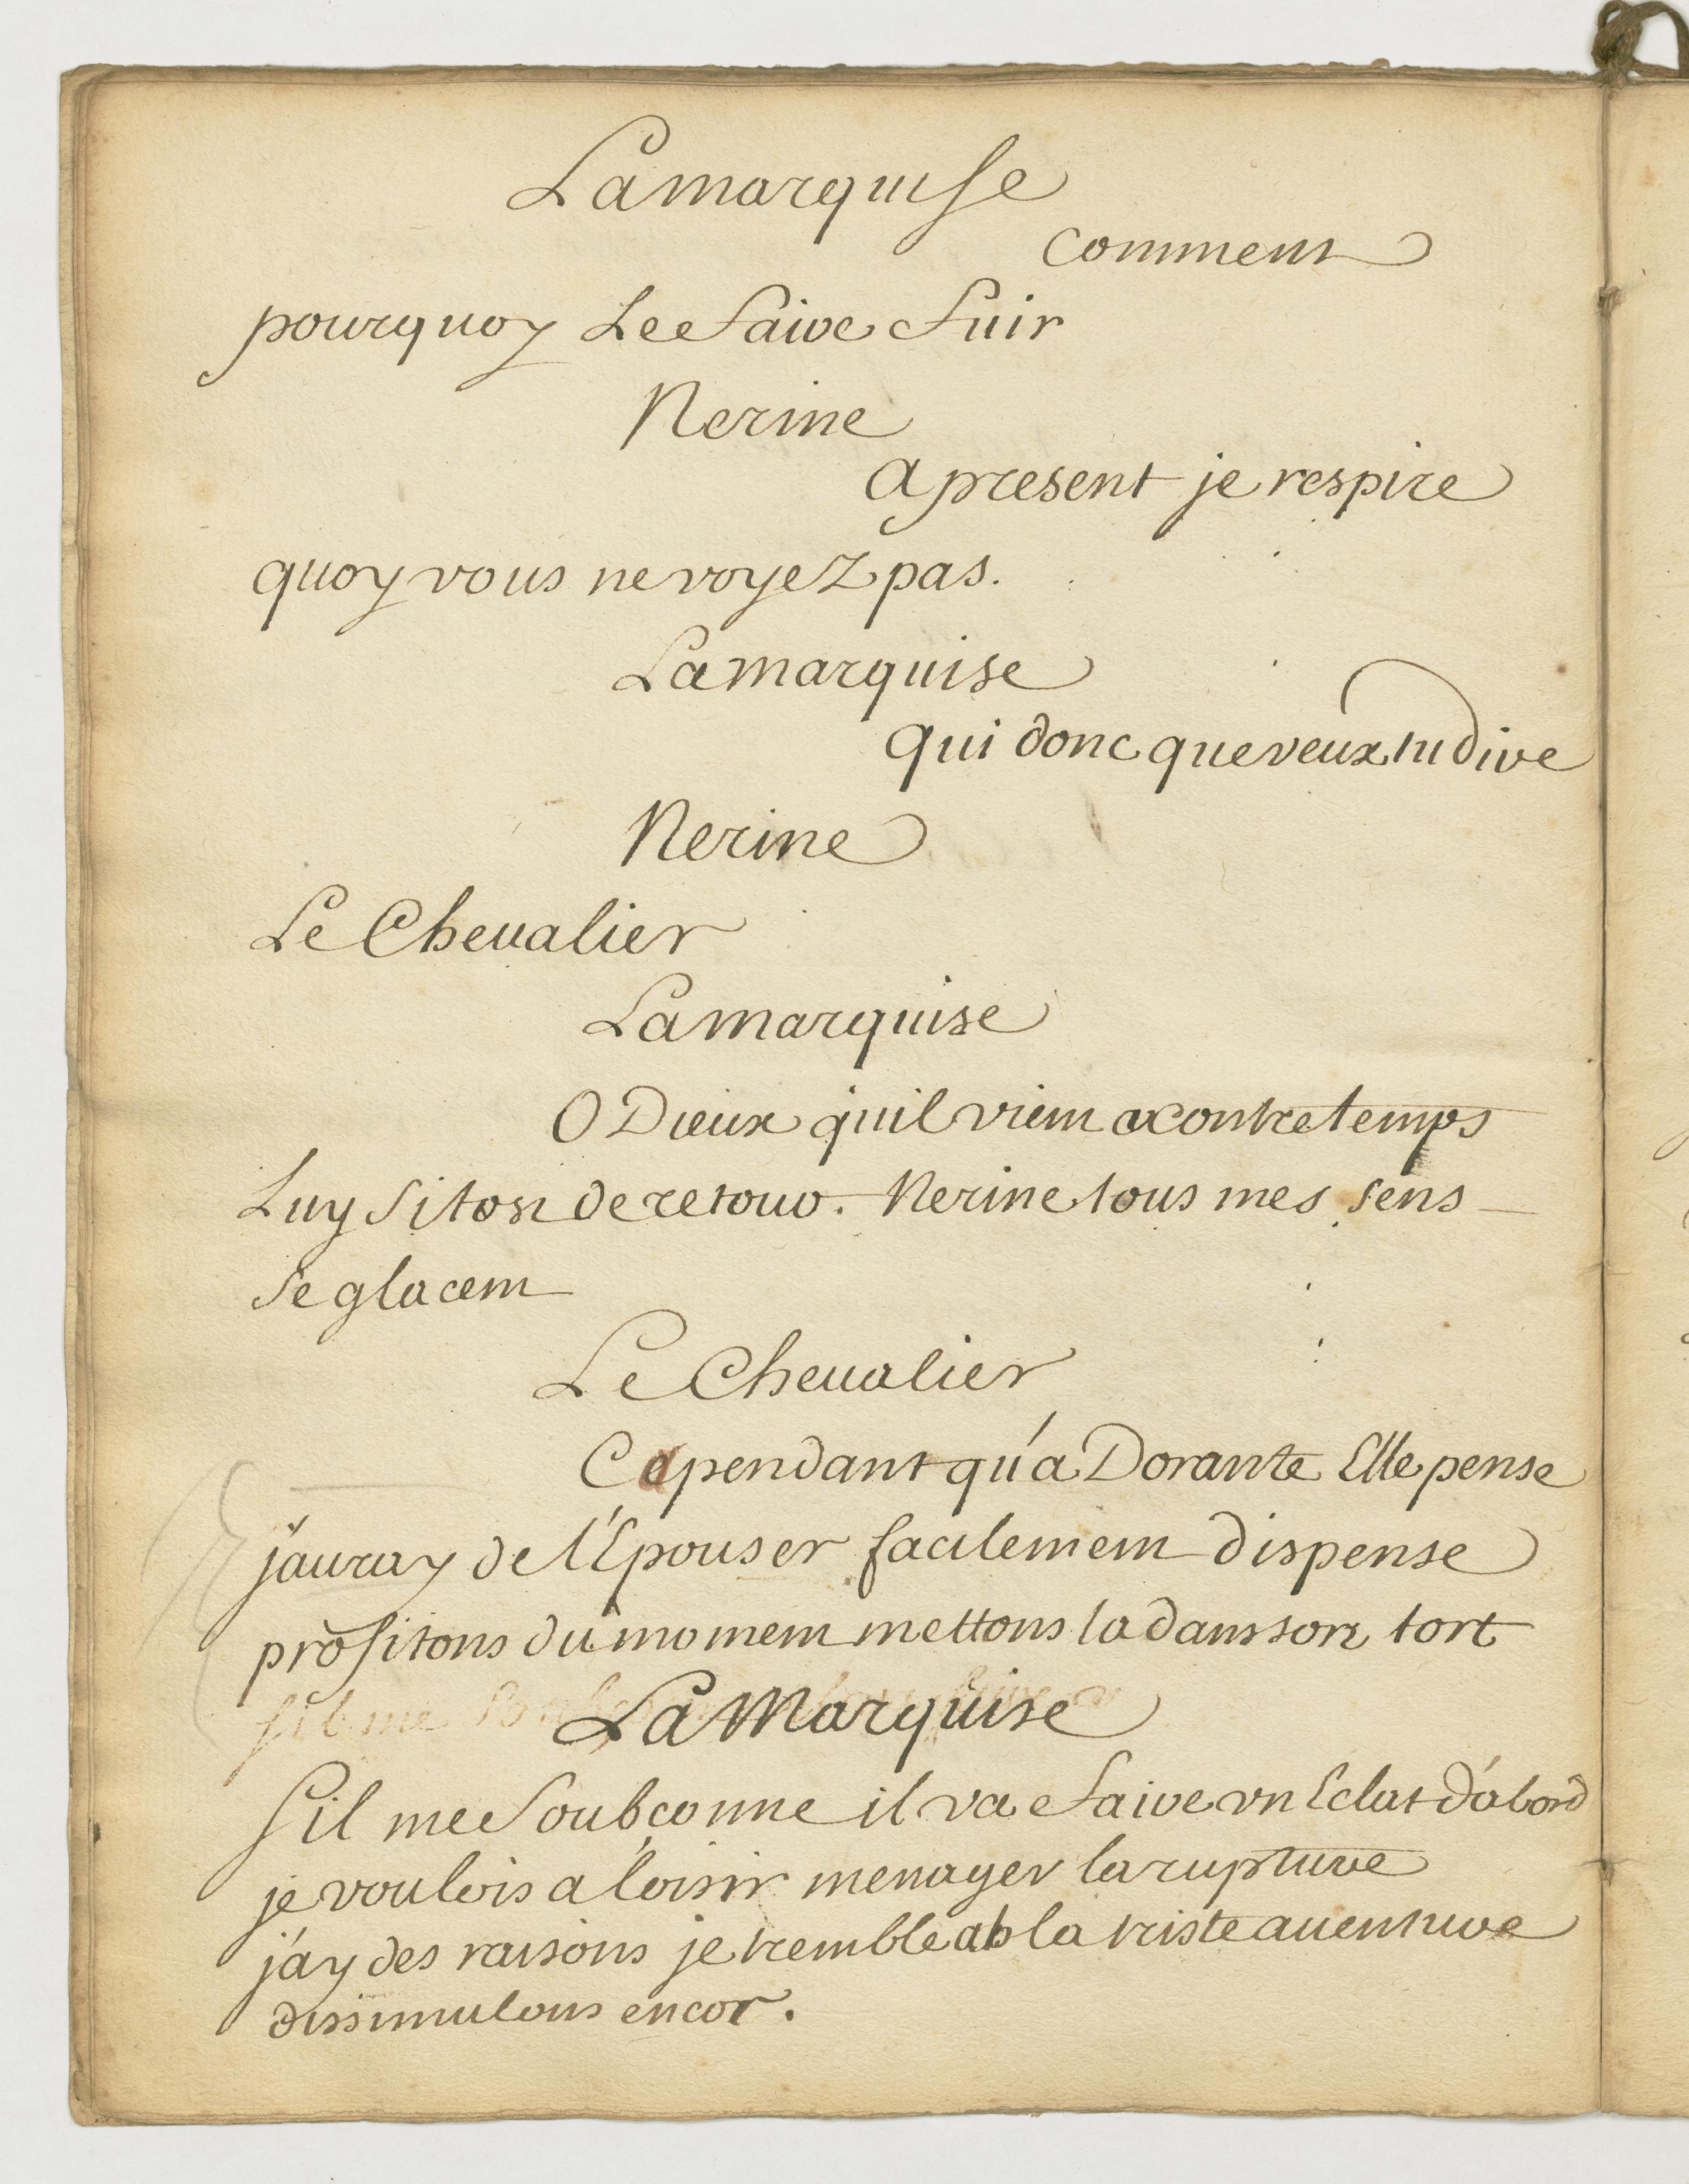 La marquise
Comment
pourquoy Le faire fuir
Nerine
a present je respire
quoy vous ne voyez pas.
La marquise
qui donc que veux tu dire
Nerine
Le Cheualier
La marquise
O Dieux qu'il vient a contretemps
Luy si tost de retour. Nerine tous mes sens
se glacent
Le Cheualier
Cependant qu'a Dorante Elle pense
j'auray de l'Epouser facilement dispense
profitons du moment mettons la dans son tort
La Marquise
s'il me soubçonne il va faire vn Eclat d'abord
je voulois a loisir menager la rupture
j'ay des raisons je tremble ah la triste auenture
dissimulons encor.